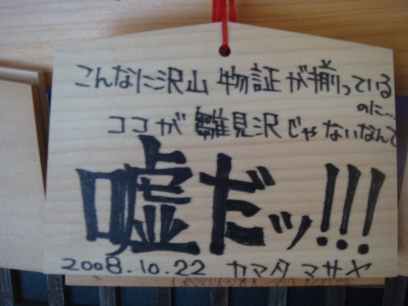 こんなに沢山 物証が揃っている
のに…
ココが 雛見沢じゃないなんて
嘘だッ!!!
2008.10.22 カマタ マサヤ